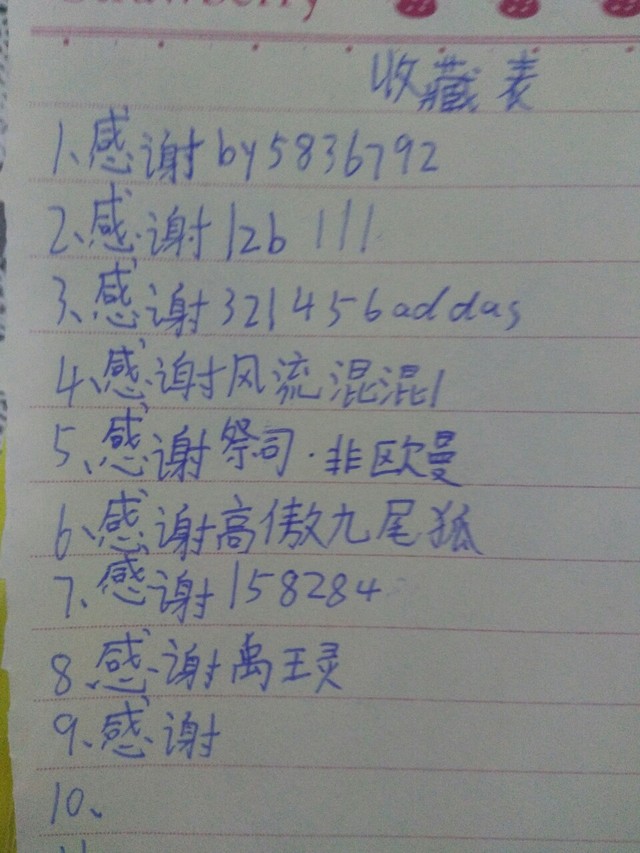 Strawberry
收藏表
1、感谢by5836792
2、感谢12b 111
3、感谢321456addas
4、感谢风流混混1
5、感谢祭司·非欧曼
6、感谢高傲九尾狐
7、感谢158284
8、感谢禹王灵
9、感谢
10、